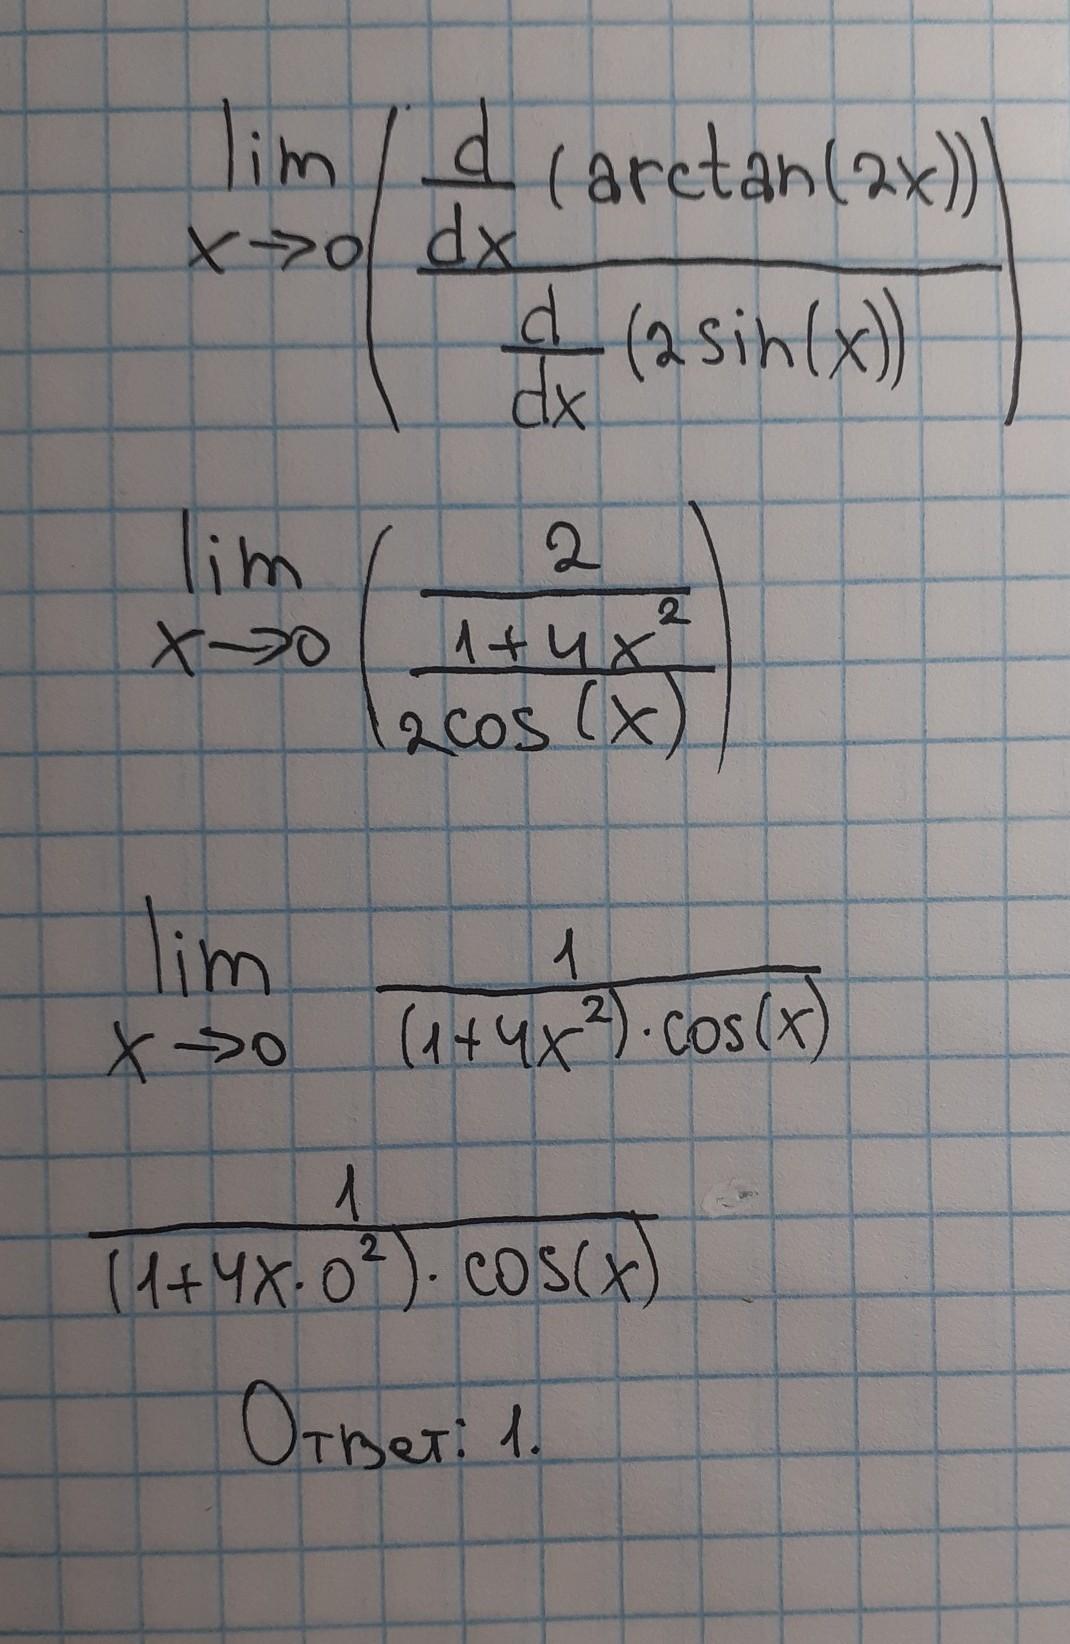 lim x→0 ( d/dx (arctan(2x)) / d/dx (2sin(x)) )
lim x→0 ( 2 / 1+4x² / 2cos(x) )
lim x→0 1 / (1+4x²)·cos(x)
1 / (1+4x·0²)·cos(x)
Ответ: 1.